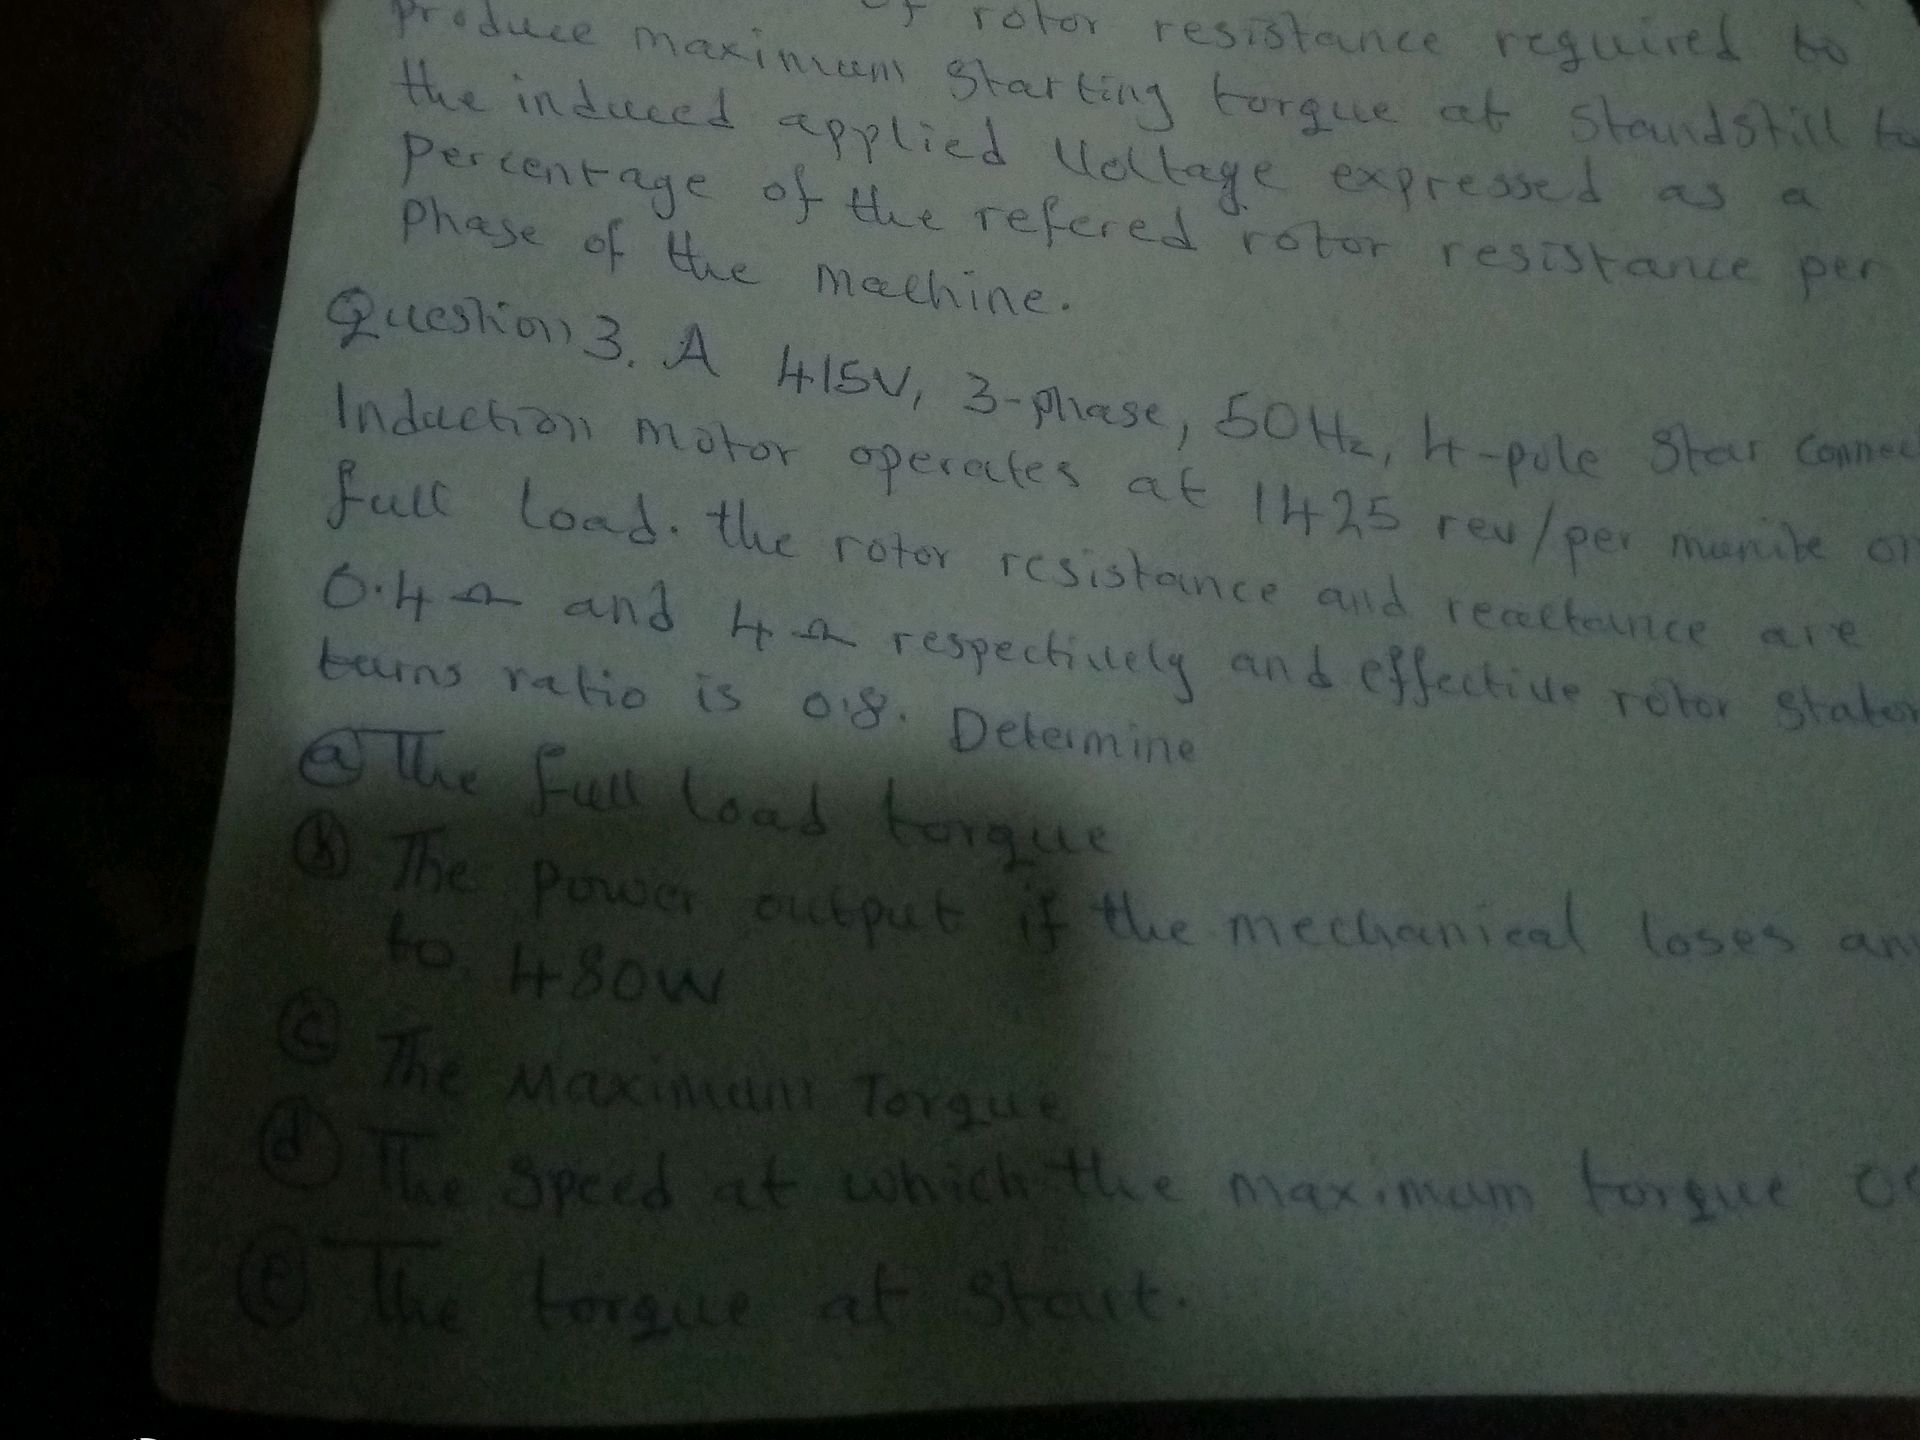 of rotor resistance required to
produce maximum starting torque at standstill to
the induced applied Voltage expressed as a
percentage of the refered rotor resistance per
phase of the machine.
Question 3. A 415V, 3-phase, 50Hz, 4-pole Star connec
Induction motor operates at 1425 rev/per munite on
full load. the rotor resistance and reactance are
0.4 Ω and 4 Ω respectively and effective rotor stator
turns ratio is 0.8. Determine
(a) The full load torque
(b) The power output if the mechanical loses am
to 480W
(c) The Maximum Torque
(d) The Speed at which the maximum torque oc
(e) The torque at Start.